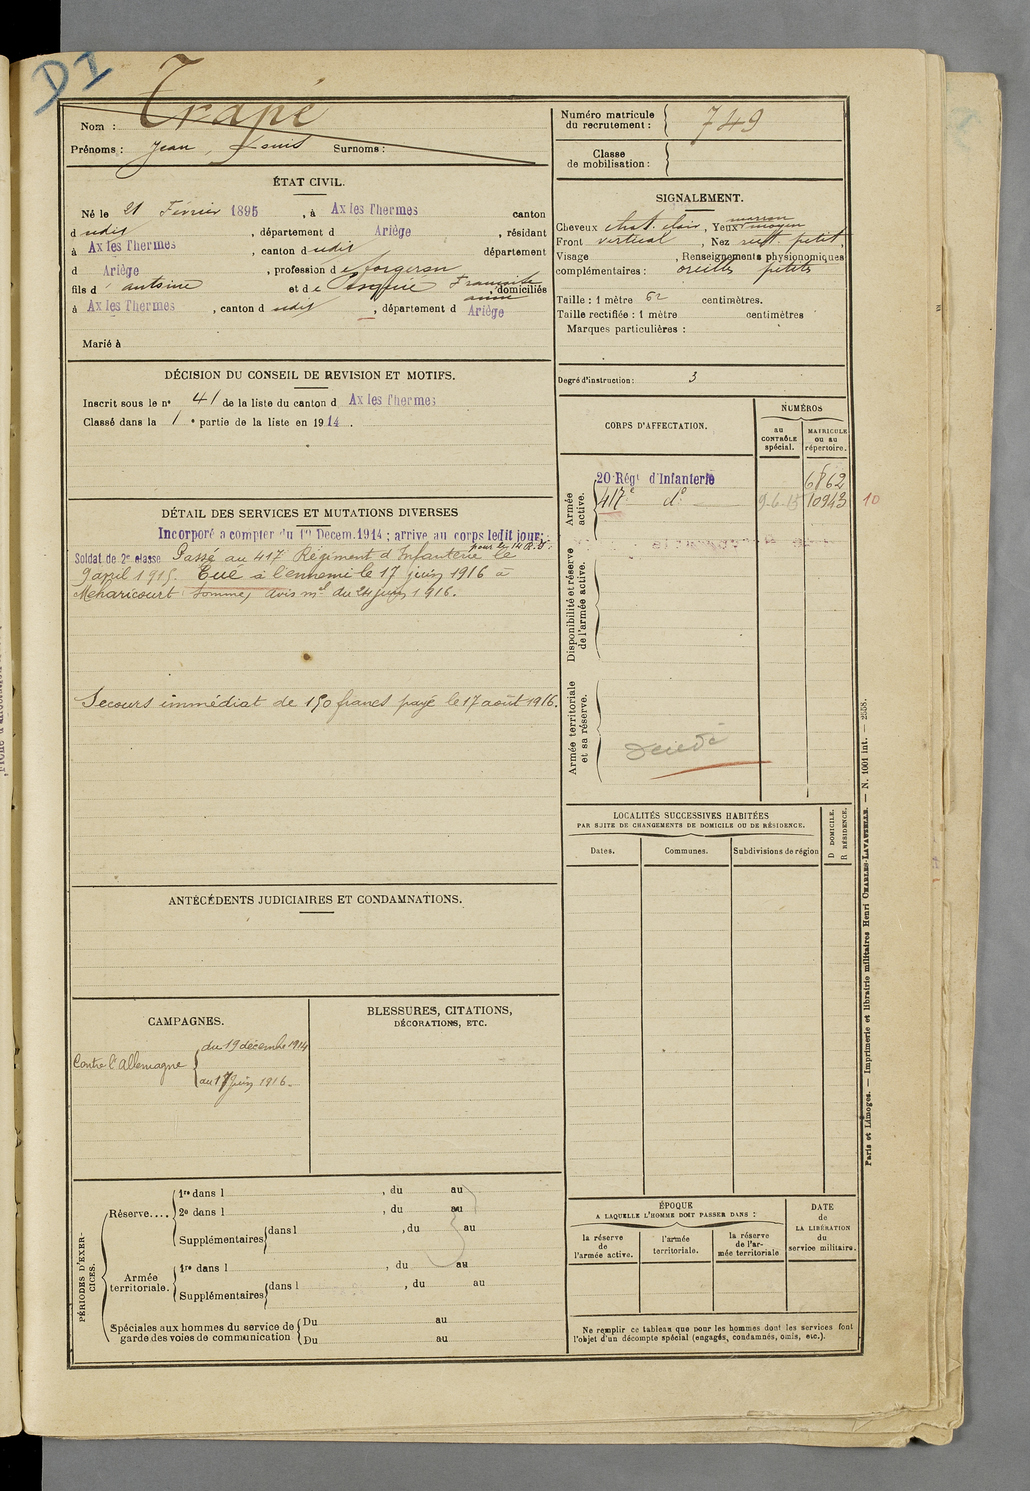 DI
Trapé
Nom :
Prénoms : Jean, Louis Surnoms :
Numéro matricule
du recrutement : 749
Classe
de mobilisation :
ÉTAT CIVIL.
Né le 21 Février 1895, à Ax les Thermes canton
d udit, département d Ariège, résidant
à Ax les Thermes, canton d udit département
d Ariège, profession de forgeron
fils d' antoine et de Françoise, domiciliés
anne
à Ax les Thermes, canton d udit, département d Ariège
Marié à
SIGNALEMENT.
Cheveux chat. clair, Yeux marron
moyen
Front vertical, Nez rect. petit,
Visage , Renseignements physionomiques
complémentaires : oreilles petites
Taille : 1 mètre 62 centimètres.
Taille rectifiée : 1 mètre centimètres
Marques particulières :
Degré d'instruction : 3
DÉCISION DU CONSEIL DE REVISION ET MOTIFS.
Inscrit sous le n° 41 de la liste du canton d Ax les Thermes
Classé dans la 1e partie de la liste en 1914.
CORPS D'AFFECTATION.
NUMÉROS
au
CONTRÔLE
spécial.
MATRICULE
ou au
répertoire.
Armée
active.
20e Régt d'Infanterie 6862
417e do 9-6-15 10943 10
Disponibilité et réserve
de l'armée active.
Armée territoriale
et sa réserve.
Décédé
DÉTAIL DES SERVICES ET MUTATIONS DIVERSES
Incorporé a compter du 1er Décem. 1914 ; arrive au corps ledit jour ;
Soldat de 2e classe Passé au 417e Régiment d'Infanterie le
9 avril 1915. Tué à l'ennemi le 17 juin 1916 à
Méharicourt (Somme) avis mel du 24 juin 1916.
Secours immédiat de 150 francs payé le 17 août 1916.
LOCALITÉS SUCCESSIVES HABITÉES
PAR SUITE DE CHANGEMENTS DE DOMICILE OU DE RÉSIDENCE.
Dates. Communes. Subdivisions de région
D DOMICILE.
R RÉSIDENCE.
ANTÉCÉDENTS JUDICIAIRES ET CONDAMNATIONS.
CAMPAGNES.
Contre l'Allemagne
du 19 décembre 1914
au 17 Juin 1916.
BLESSURES, CITATIONS,
DÉCORATIONS, ETC.
PÉRIODES D'EXER-
CICES.
Réserve....
1re dans l , du au
2e dans l , du au
Supplémentaires dans l , du au
Armée
territoriale.
1re dans l , du au
Supplémentaires dans l , du au
Spéciales aux hommes du service de
garde des voies de communication
Du au
Du au
ÉPOQUE
A LAQUELLE L'HOMME DOIT PASSER DANS :
la réserve
de
l'armée active.
l'armée
territoriale.
la réserve
de l'ar-
mée territoriale
DATE
de
LA LIBÉRATION
du
service militaire.
Ne remplir ce tableau que pour les hommes dont les services font
l'objet d'un décompte spécial (engagés, condamnés, omis, etc.).
Paris et Limoges. — Imprimerie et librairie militaires Henri CHARLES-LAVAUZELLE. — N. 1001 int. — 2558.